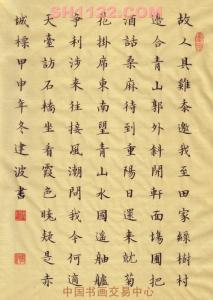 故人具雞黍邀我至田家綠樹村
邊合青山郭外斜開軒面場圃把
酒話桑麻待到重陽日還來就菊
花掛席東南望青山水國遥舳艫
爭利涉來往接風潮問我今何適
天臺訪石橋坐看霞色晚疑是赤
城標甲申年冬建波書
中国书画交易中心